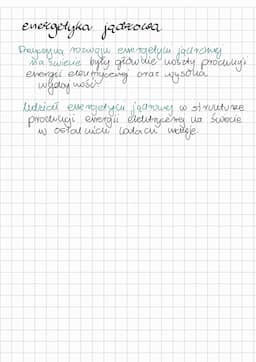 energetyka jądrowa
Przyczyną rozwoju energetyki jądrowej
na świecie były głównie koszty produkcji
energii elektrycznej oraz wysoka
wydajność.
Udział energetyki jądrowej w strukturze
produkcji energii elektrycznej na świecie
w ostatnich latach maleje.